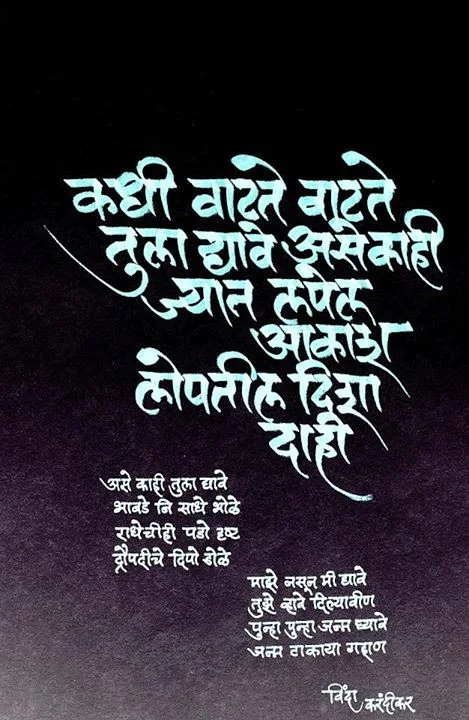 कधी वाटते वाटते
तुला द्यावे असे काही
ज्यात लपेल
आकाश
लोपतील दिशा
दाही
असे काही तुला द्यावे
भाबडे नि साधे भोळे
राधेचीही पडो दृष्ट
द्रौपदीचे दिपो डोळे
माझे नसून मी द्यावे
तुझे व्हावे दिल्यावीण
पुन्हा पुन्हा जन्म घ्यावे
जन्म टाकाया गहाण
विंदा करंदीकर